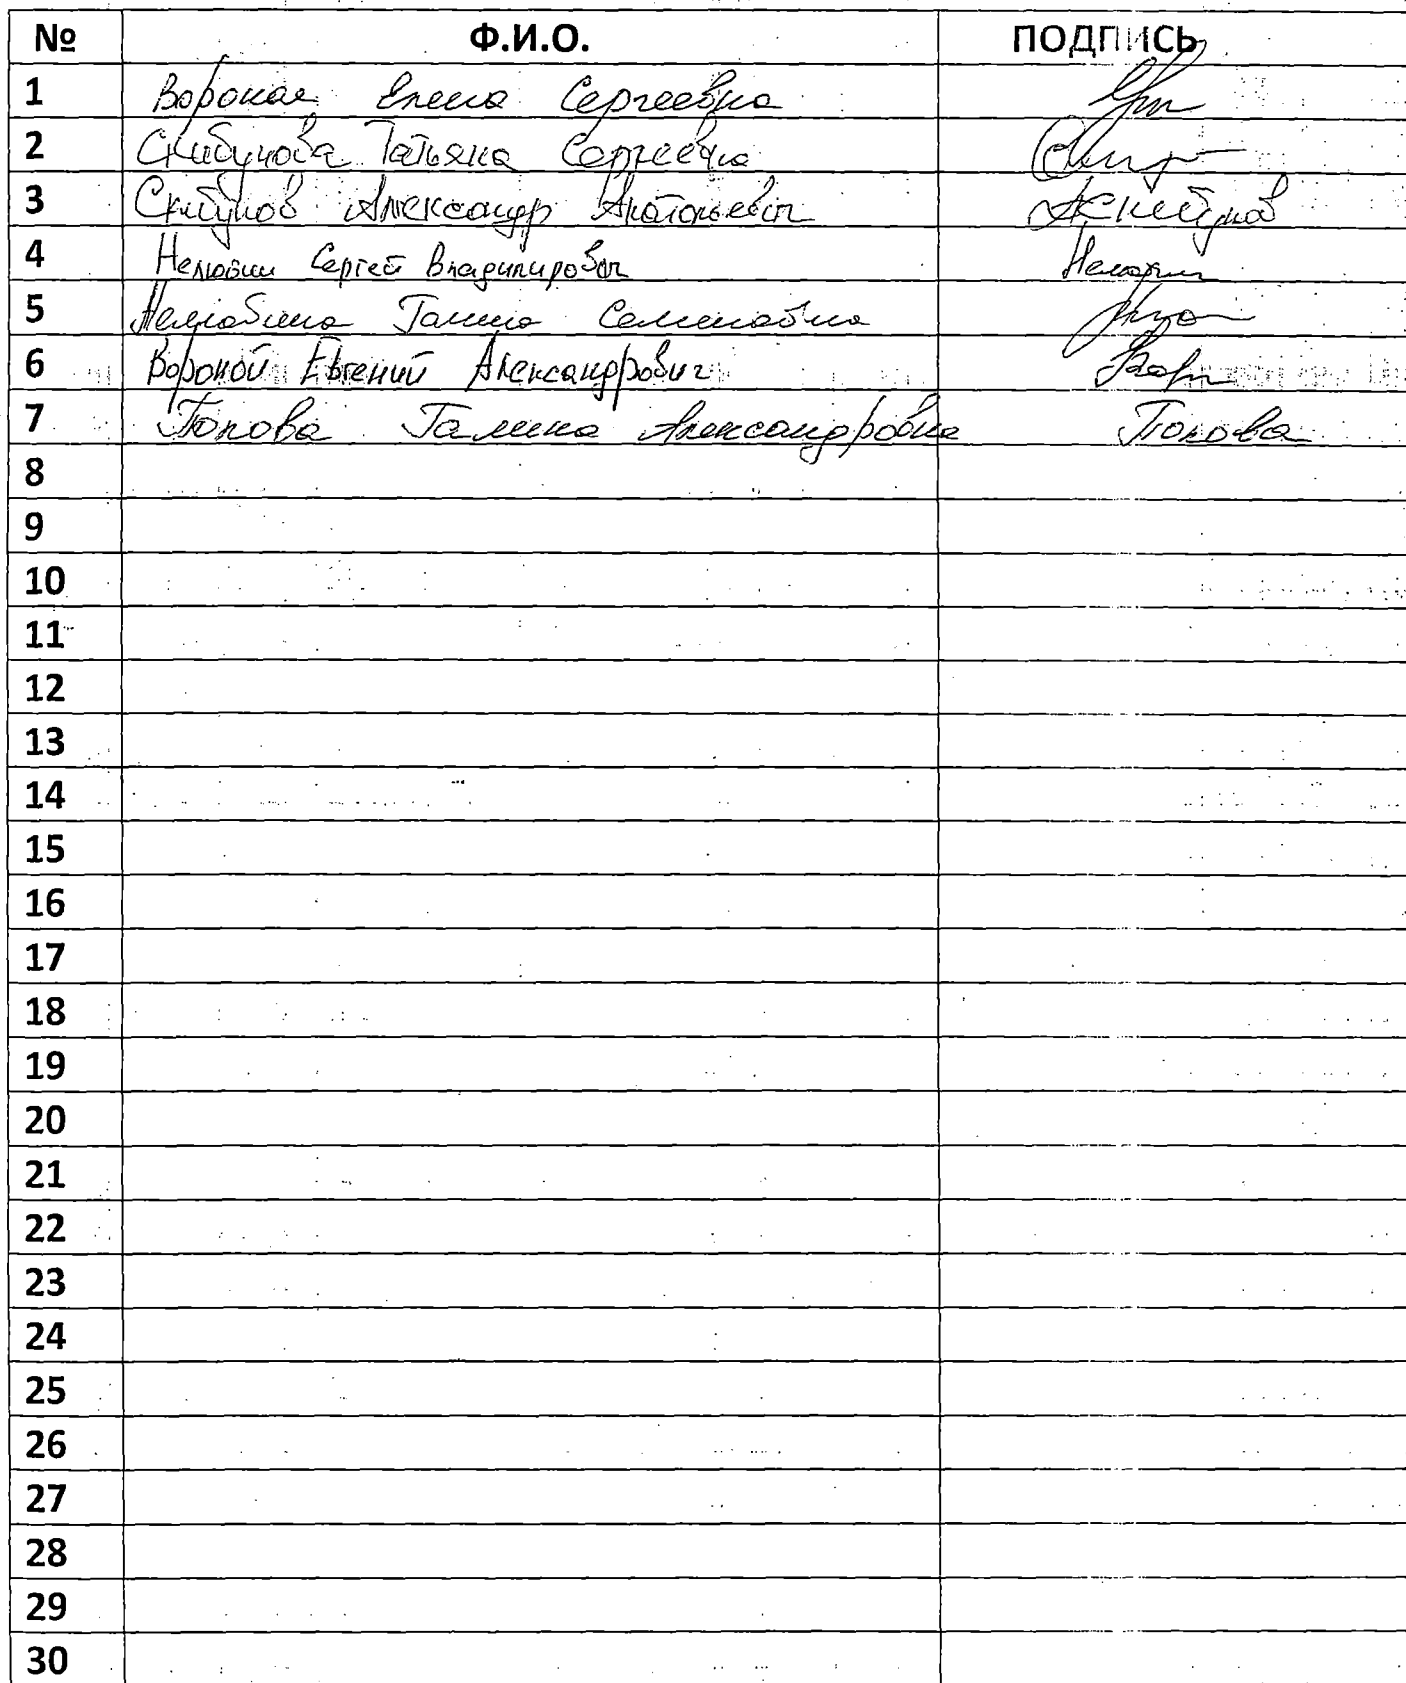 № Ф.И.О. ПОДПИСЬ
1 Вороная Елена Сергеевна
2 Скибунова Татьяна Сергеевна
3 Скибунов Александр Анатольевич АСкибунов
4 Нелюбин Сергей Владимирович Нелюбин
5 Нелюбина Галина Семеновна
6 Вороной Евгений Александрович
7 Попова Галина Александровна Попова
8
9
10
11
12
13
14
15
16
17
18
19
20
21
22
23
24
25
26
27
28
29
30